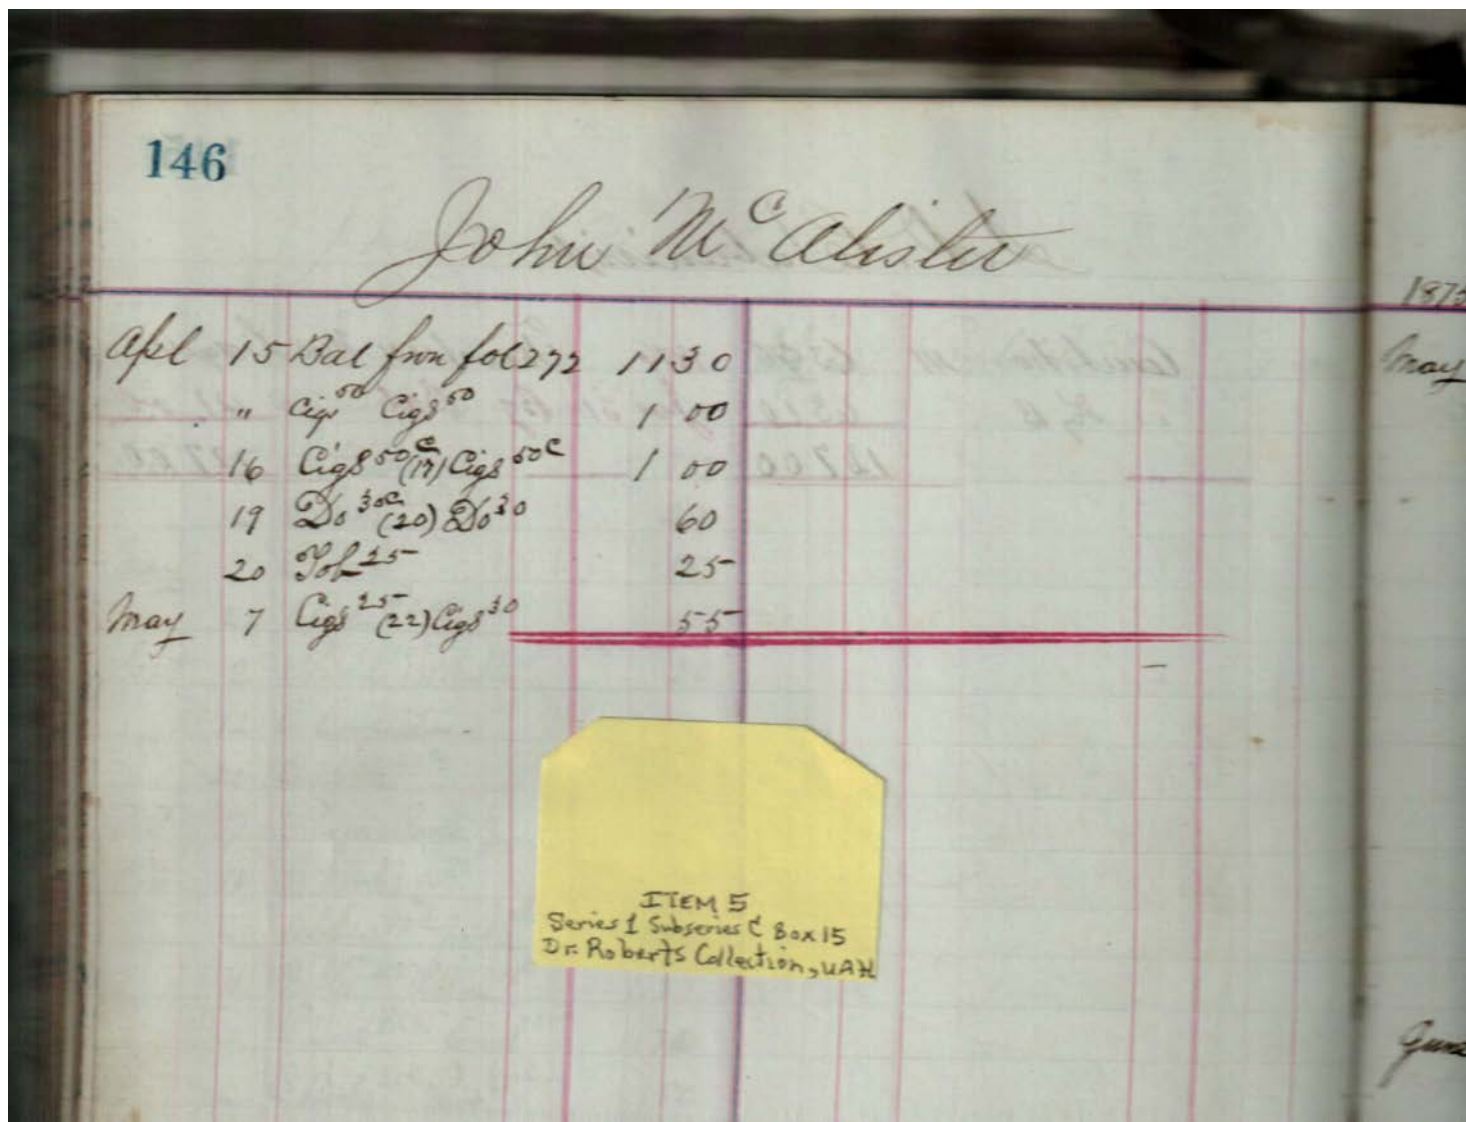 146
John McAlister
1875
Apl 15 Bal from fol 272 11 30
" Cigs 50 Cigs 50 1 00
16 Cigs 50c (17) Cigs 50c 1 00
19 Do 30c (20) Do 30 60
20 Tob 25 25
May 7 Cigs 25 (22) Cigs 30 55
May
ITEM 5
Series 1 Subseries C Box 15
Dr. Roberts Collection, UAH
June